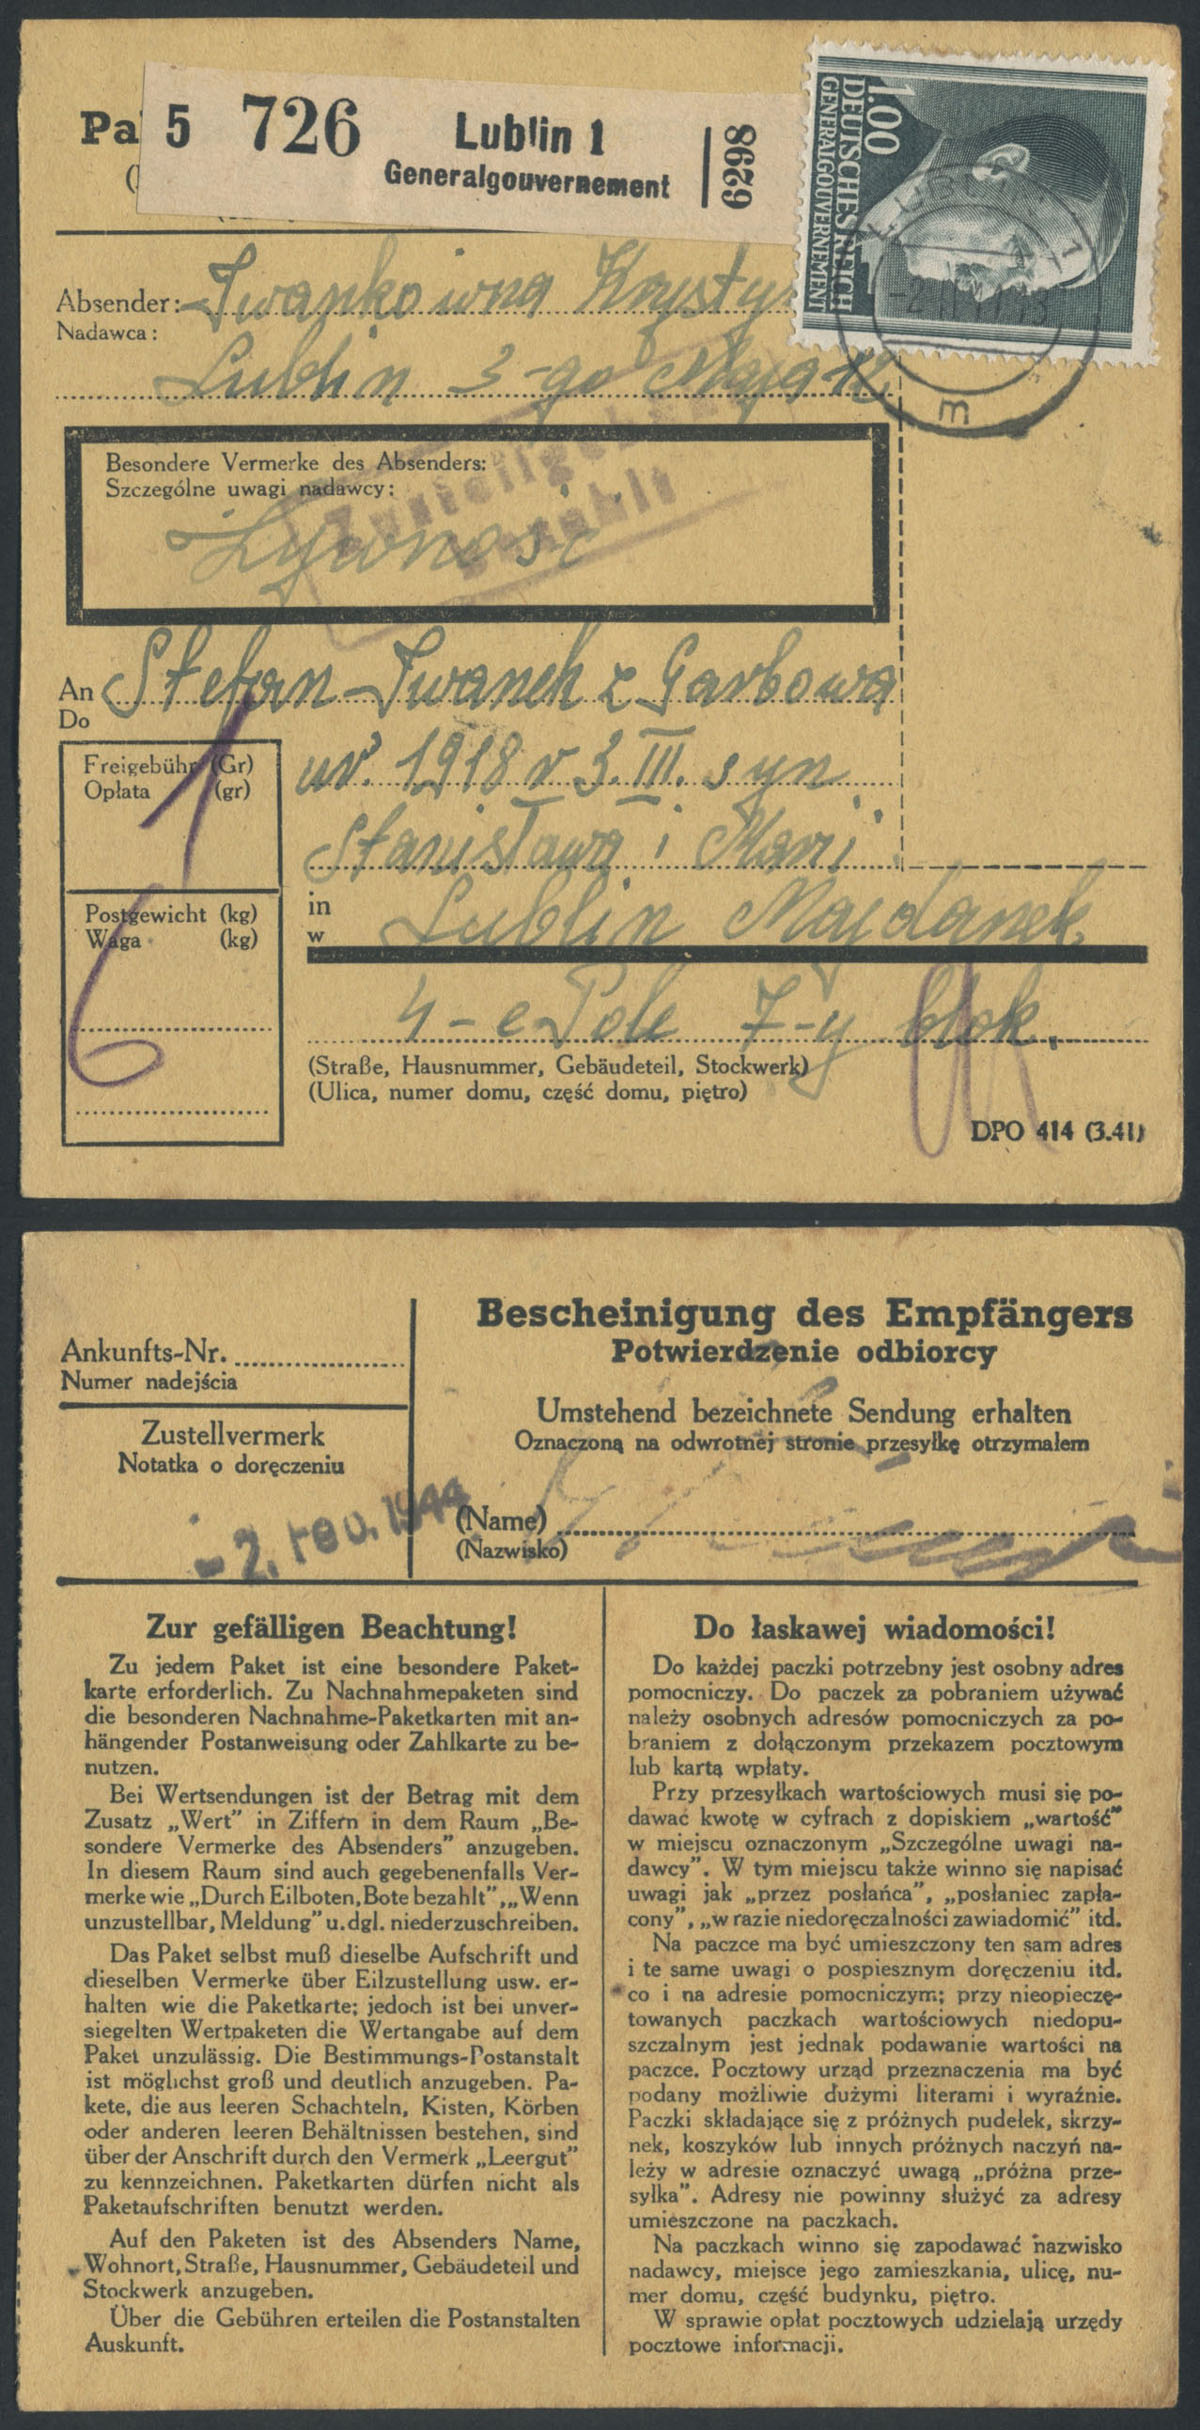 Pa
5 726 Lublin 1
Generalgouvernement
6298
1.00
DEUTSCHES REICH
GENERALGOUVERNEMENT
LUBLIN 1
m
Absender: Iwankówna Krysty
Nadawca:
Lublin 3-go Maja 12
Besondere Vermerke des Absenders:
Szczególne uwagi nadawcy:
Zustellgebühr
bezahlt
Żywność
An Stefan Iwanek z Garbowa
Do
Freigebühr (Gr)
Opłata (gr)
1
ur. 1918 r 3.III. syn
Stanisława i Marii
Postgewicht (kg)
Waga (kg)
6
in
w
Lublin Majdanek
4-e Pole 7-y blok.
(Straße, Hausnummer, Gebäudeteil, Stockwerk)
(Ulica, numer domu, część domu, piętro)
DPO 414 (3.41)
Bescheinigung des Empfängers
Potwierdzenie odbiorcy
Ankunfts-Nr.
Numer nadejścia
Umstehend bezeichnete Sendung erhalten
Oznaczoną na odwrotnej stronie przesyłkę otrzymałem
Zustellvermerk
Notatka o doręczeniu
-2. Feb. 1944
(Name)
(Nazwisko)
Zur gefälligen Beachtung!
Zu jedem Paket ist eine besondere Paket-
karte erforderlich. Zu Nachnahmepaketen sind
die besonderen Nachnahme-Paketkarten mit an-
hängender Postanweisung oder Zahlkarte zu be-
nutzen.
Bei Wertsendungen ist der Betrag mit dem
Zusatz „Wert" in Ziffern in dem Raum „Be-
sondere Vermerke des Absenders" anzugeben.
In diesem Raum sind auch gegebenenfalls Ver-
merke wie „Durch Eilboten, Bote bezahlt", „Wenn
unzustellbar, Meldung" u. dgl. niederzuschreiben.
Das Paket selbst muß dieselbe Aufschrift und
dieselben Vermerke über Eilzustellung usw. er-
halten wie die Paketkarte; jedoch ist bei unver-
siegelten Wertpaketen die Wertangabe auf dem
Paket unzulässig. Die Bestimmungs-Postanstalt
ist möglichst groß und deutlich anzugeben. Pa-
kete, die aus leeren Schachteln, Kisten, Körben
oder anderen leeren Behältnissen bestehen, sind
über der Anschrift durch den Vermerk „Leergut"
zu kennzeichnen. Paketkarten dürfen nicht als
Paketaufschriften benutzt werden.
Auf den Paketen ist des Absenders Name,
Wohnort, Straße, Hausnummer, Gebäudeteil und
Stockwerk anzugeben.
Über die Gebühren erteilen die Postanstalten
Auskunft.
Do łaskawej wiadomości!
Do każdej paczki potrzebny jest osobny adres
pomocniczy. Do paczek za pobraniem używać
należy osobnych adresów pomocniczych za po-
braniem z dołączonym przekazem pocztowym
lub kartą wpłaty.
Przy przesyłkach wartościowych musi się po-
dawać kwotę w cyfrach z dopiskiem „wartość"
w miejscu oznaczonym „Szczególne uwagi na-
dawcy". W tym miejscu także winno się napisać
uwagi jak „przez posłańca", „posłaniec zapła-
cony", „w razie niedoręczalności zawiadomić" itd.
Na paczce ma być umieszczony ten sam adres
i te same uwagi o pospiesznym doręczeniu itd.
co i na adresie pomocniczym; przy nieopieczę-
towanych paczkach wartościowych niedopu-
szczalnym jest jednak podawanie wartości na
paczce. Pocztowy urząd przeznaczenia ma być
podany możliwie dużymi literami i wyraźnie.
Paczki składające się z próżnych pudełek, skrzy-
nek, koszyków lub innych próżnych naczyń na-
leży w adresie oznaczyć uwagą „próżna prze-
syłka". Adresy nie powinny służyć za adresy
umieszczone na paczkach.
Na paczkach winno się zapodawać nazwisko
nadawcy, miejsce jego zamieszkania, ulicę, nu-
mer domu, część budynku, piętro.
W sprawie opłat pocztowych udzielają urzędy
pocztowe informacji.